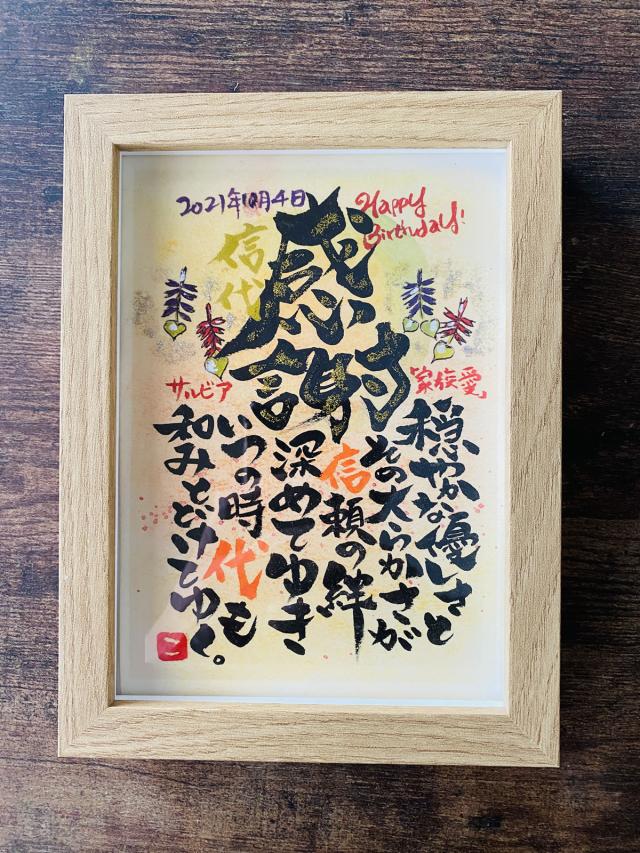 2021年10月4日
Happy
Birthday!
信代
感謝
サルビア
家族愛
穏やかな優しさと
その大らかさが
信頼の絆
深めてゆき
いつの時代も
和みとどけてゆく。
こ